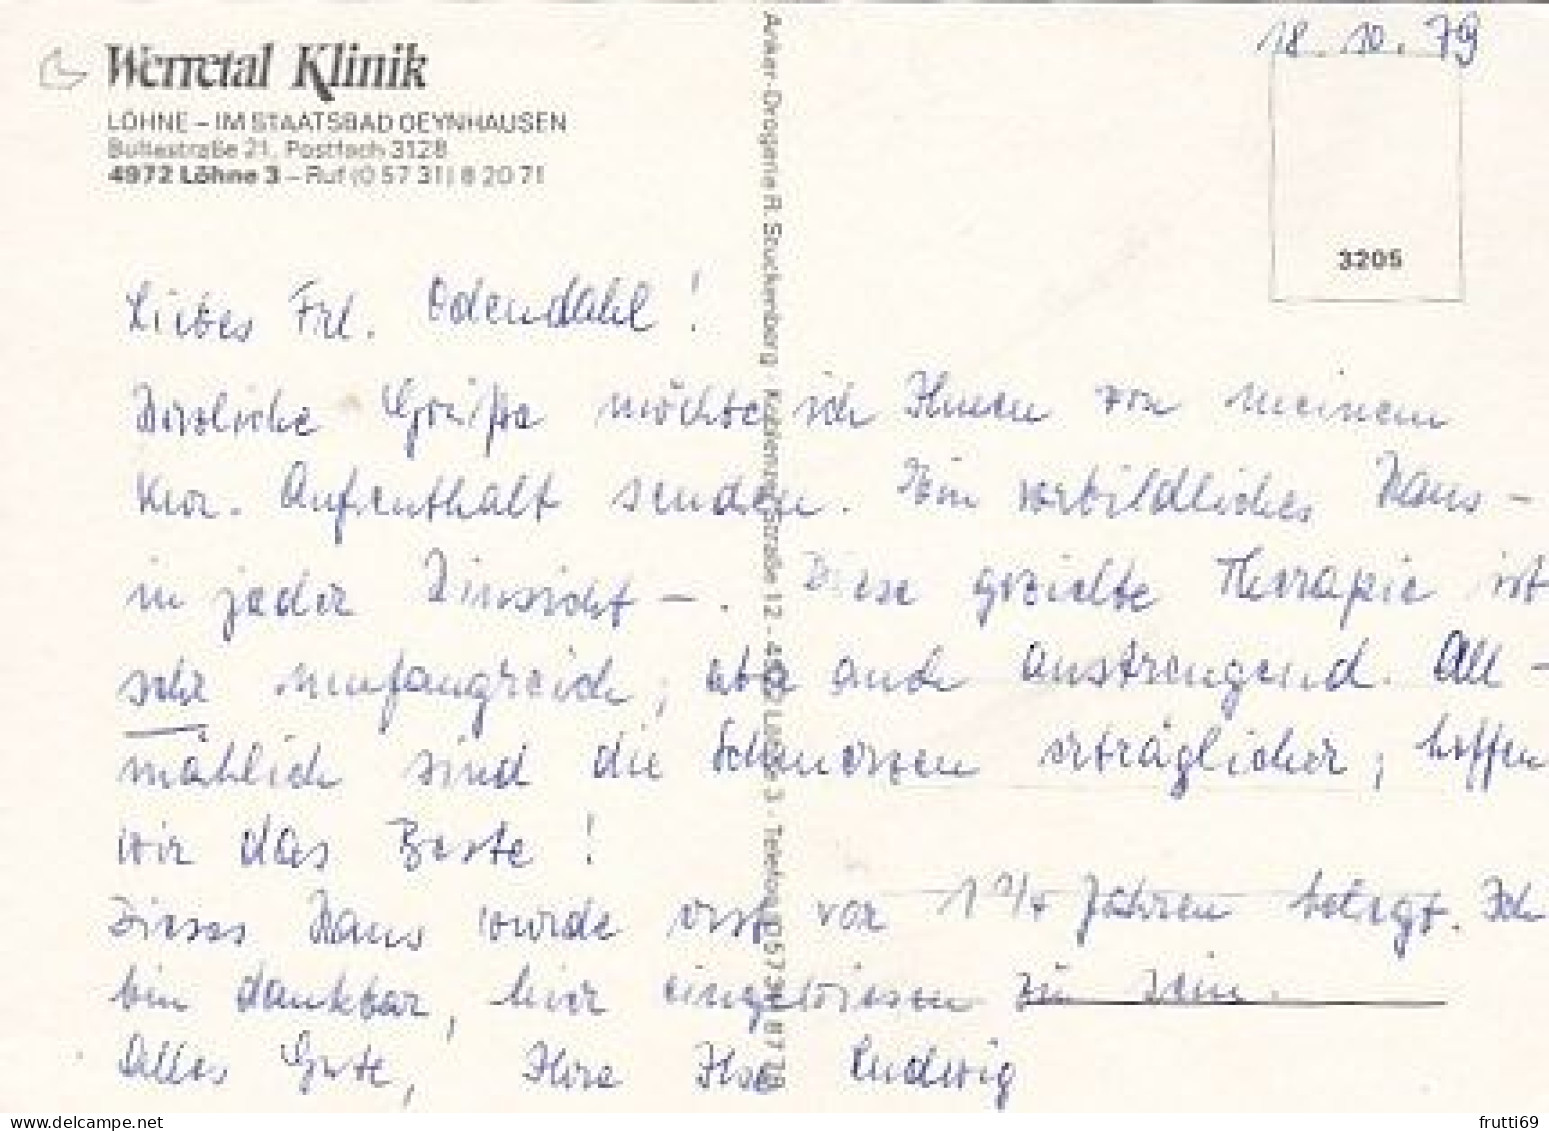 18. 10. 79
Werretal Klinik
LÖHNE – IM STAATSBAD OEYNHAUSEN
Bültestraße 21, Postfach 3128
4972 Löhne 3 – Ruf (0 57 31) 8 20 71
3205
Anker-Drogerie R. Stuckenberg Koblenzer Straße 12 - 4972 Löhne 3 - Telefon (0 57 31) 8 77 78
Liebes Frl. Odendahl!
Herzliche Grüße möchte ich Ihnen von meinem
Kur-Aufenthalt senden. Ein vorbildliches Haus –
in jeder Hinsicht –. Diese gezielte Therapie ist
sehr umfangreich, aber auch anstrengend. All-
mählich sind die Schmerzen erträglicher, hoffen
wir das Beste!
Dieses Haus wurde erst vor 1 1/4 Jahren belegt. Ich
bin dankbar, hier eingewiesen zu sein.
Alles Gute, Ihre Ilse Ludwig
frutti69